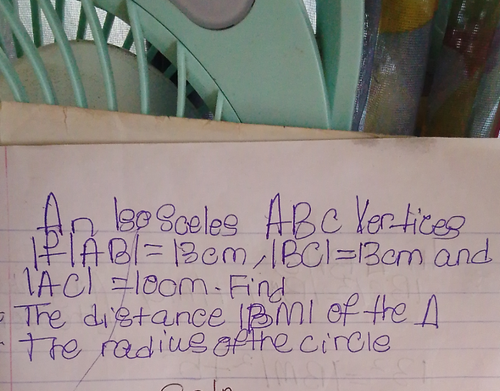 An Isosceles ABC Vertices
If |AB| = 13cm, |BC| = 13cm and
|AC| = 10cm. Find
The distance |BM| of the Δ
The radius of the circle